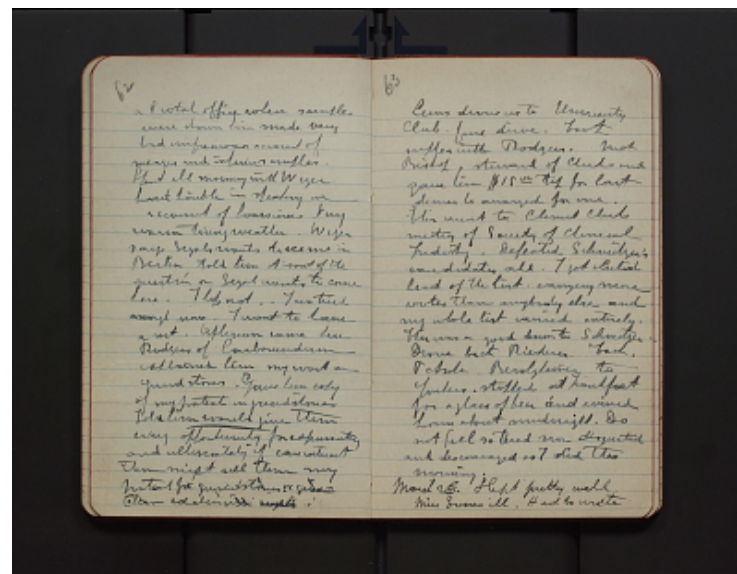 62
a Hotel office where samples
were shown him made very
bad impression account of
meagre and inferior samples.
Had all morning with Wiger
had trouble in hearing on
account of hoarseness. Very
warm trying weather. Wiger
says Segals wants to come in
Berlin. Told him out of the
question or Segal wants to come
here. I hope not. I am tired
enough now. I want to have
a rest. Afternoon came here
Rodgers of Carborundum
showed him my work on
grindstones. Gave him copy
of my patent in grindstones
Told him would give them
every opportunity for
and ultimately if convenient
them might sell them my
patent for grindstones
63
drove us to University
Club. fine drive. Took
supper with Rodgers. Met
Bishop, steward of Club and
gave him $15.00 tip for last
dinner he arranged for me.
Then went to Chemist Club
meeting of Society of Chemical
Industry. Defeated Schweitzer's
candidates all. I got elected
head of the list. carrying more
votes than anybody else and
my whole list carried entirely.
This was a good lesson to Schweitzer.
Drove back Niederer.
to
Yonkers. stopped at
for a glass of beer and arrived
home about midnight. Do
not feel so tired nor disgusted
and discouraged as I did this
morning.
March 26. Slept pretty well
Miss ill. Had to write